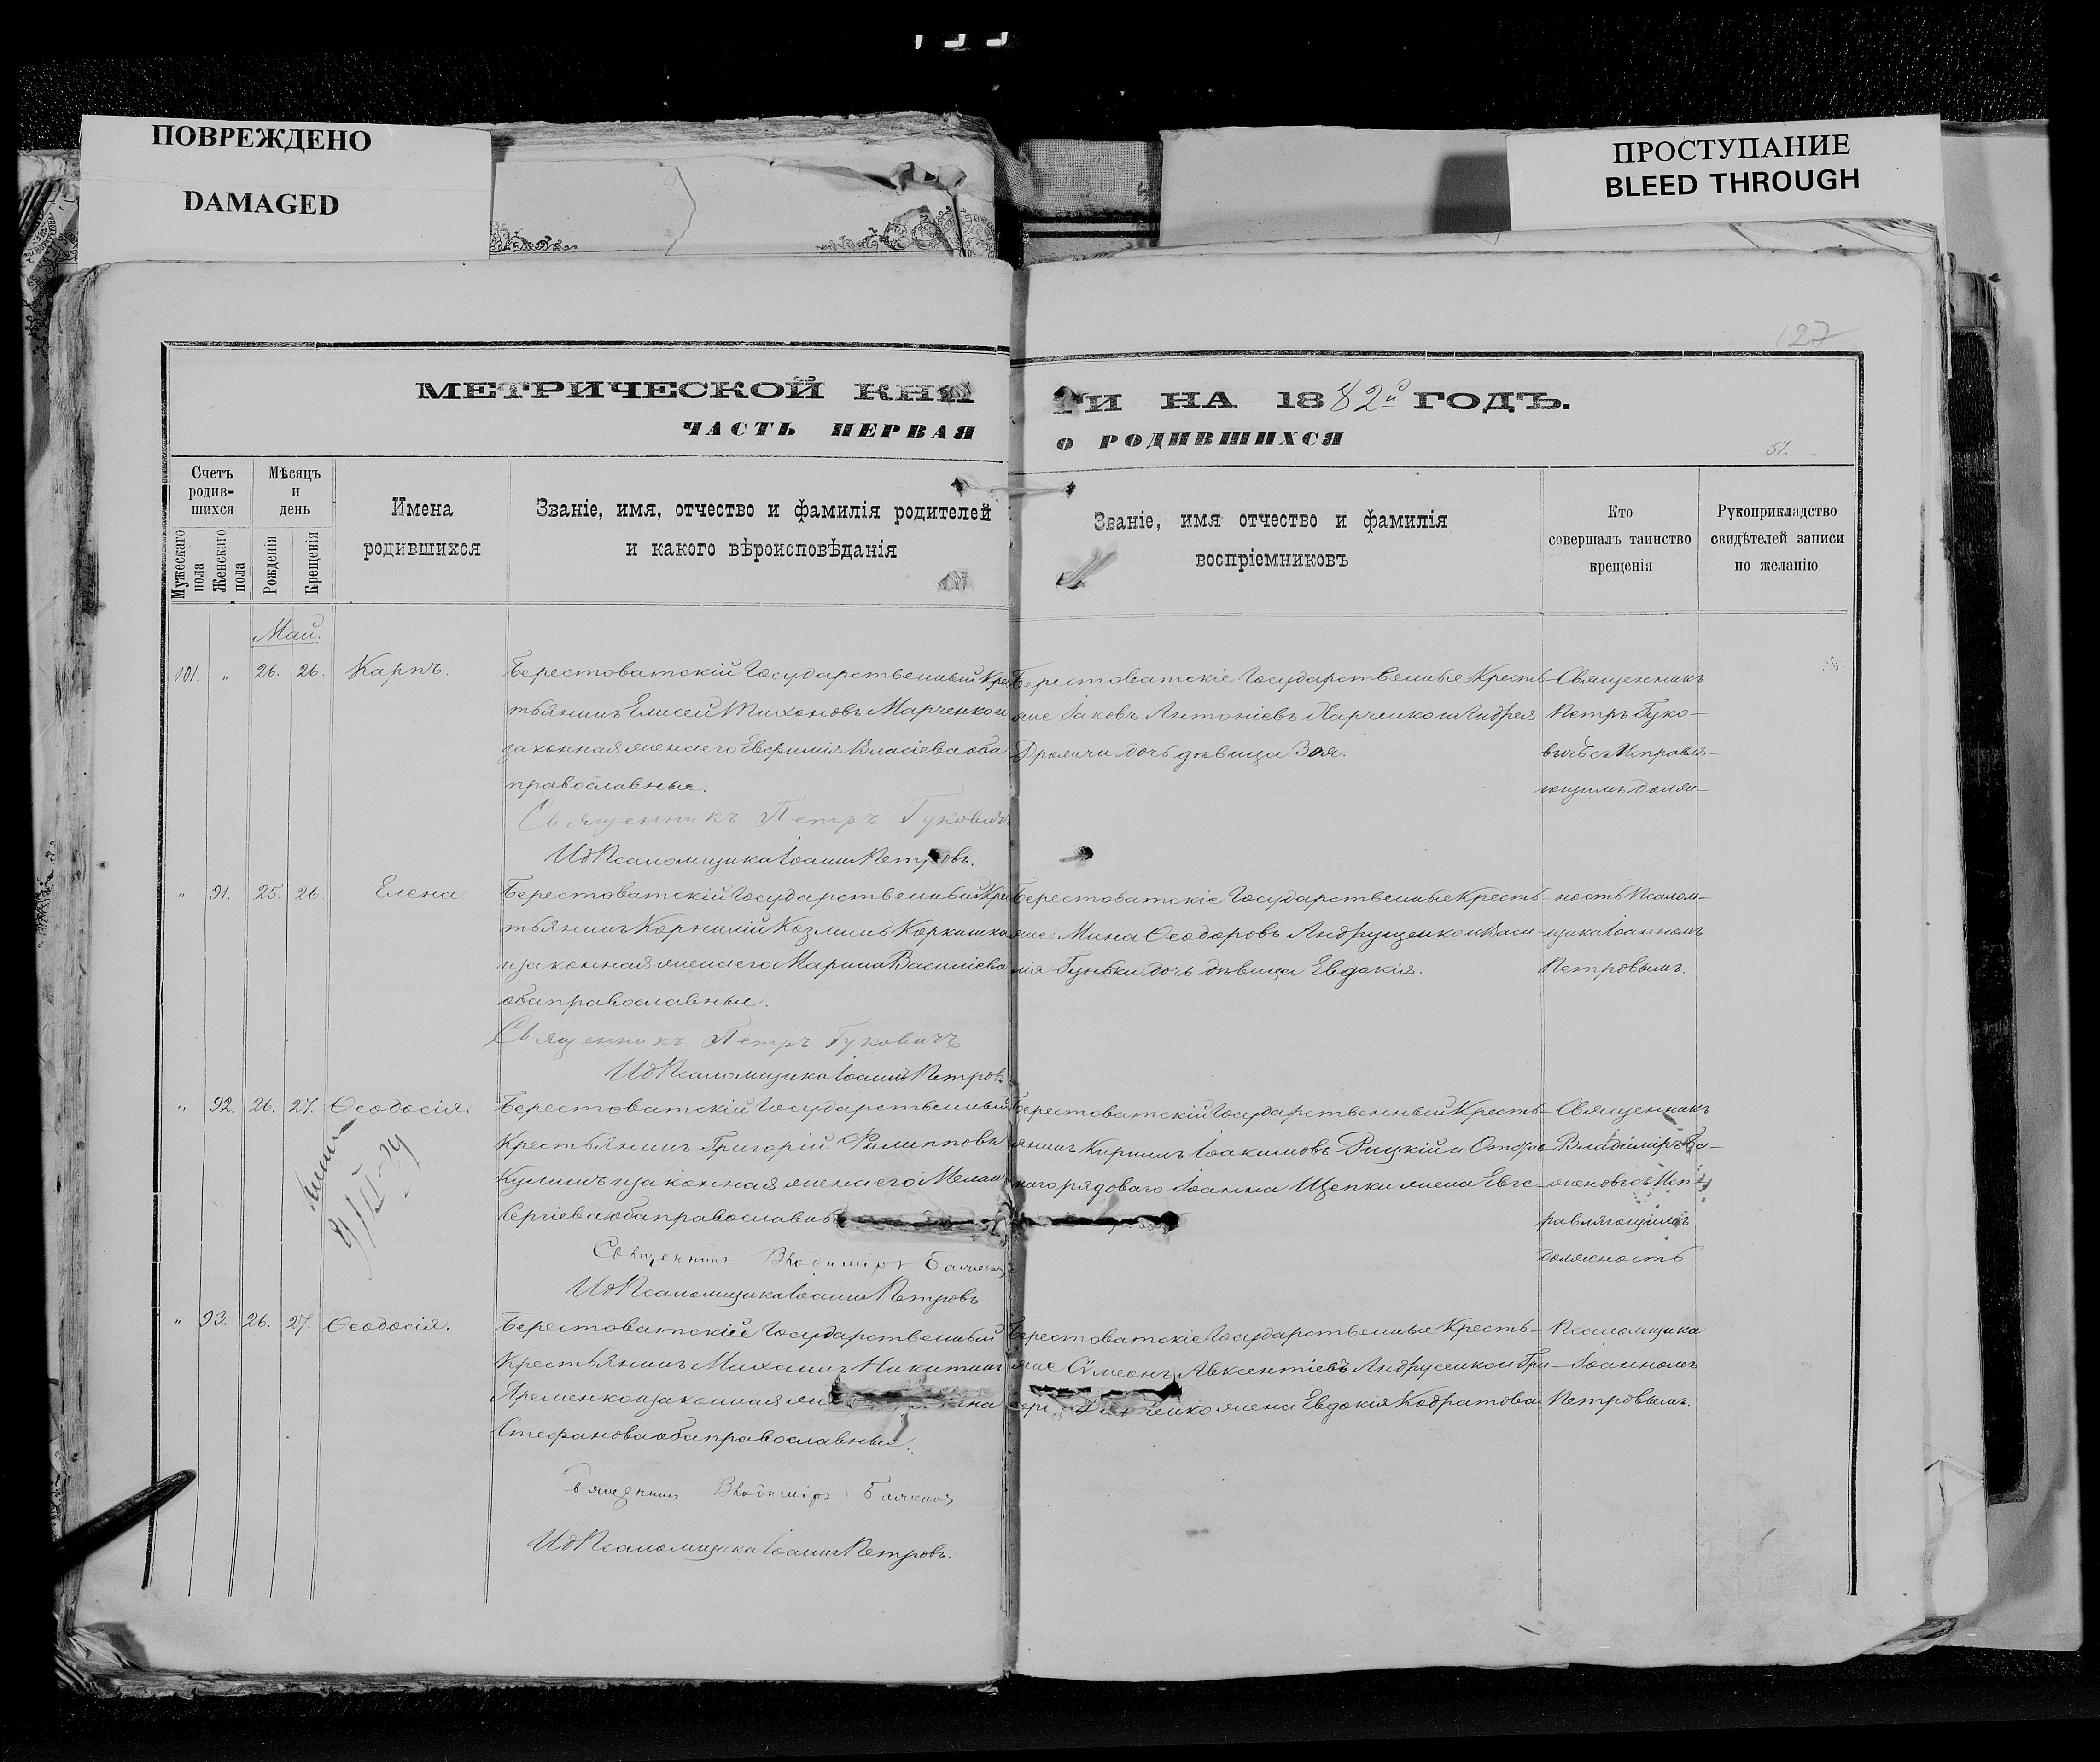 ПОВРЕЖДЕНО
DAMAGED
ПРОСТУПАНИЕ
BLEED THROUGH
127
МЕТРИЧЕСКОЙ КНИ
ГИ НА 1882й ГОДЪ.
ЧАСТЬ ПЕРВАЯ
О РОДИВШИХСЯ
51.
Счетъ родив-шихся
Мужескаго пола
Женскаго пола
Мѣсяцъ и день
Рожденія
Крещенія
Имена родившихся
Званіе, имя, отчество и фамилія родителей
и какого вѣроисповѣданія
Званіе, имя отчество и фамилія
воспріемниковъ
Кто
совершалъ таинство
крещенія
Рукоприкладство
свидѣтелей записи
по желанію
Май.
101. " 26. 26. Карпъ.
Берестоватскій Государственный Крес
тьянинъ Елисей Тихоновъ Марченко и
законная жена его Евфимія Власіева оба
православные.
Священникъ Петръ Гуковичъ
Ид Псаломщика Іоаннъ Петровъ.
Берестоватскіе Государственные Кресть-
яне Іаковъ Антоніевъ Харченко и Андрея
дочь дѣвица Зоя.
Священникъ
Петръ Гуко-
вичъ съ Исправля-
ющимъ долж-
" 91. 25. 26. Елена.
Берестоватскій Государственный Крес
тьянинъ Корнилій Козминъ Коркишко
и законная жена его Марина Василіева
оба православные.
Священникъ Петръ Гуковичъ
Ид Псаломщика Іоаннъ Петровъ
Берестоватскіе Государственные Кресть-
яне: Мина Ѳеодоровъ Андрущенко и Васи-
лія Гуньки дочь дѣвица Евдокія.
ность Псалом-
щика Іоанномъ
Петровымъ.
" 92. 26. 27. Ѳеодосія.
Берестоватскій Государственный
Крестьянинъ Григорій Филипповъ
Кулишъ и законная жена его Мелан
Сергіева оба православные
Священникъ Владиміръ Баженовъ
Ид Псаломщика Іоаннъ Петровъ
Берестоватскій Государственный Кресть-
янинъ Кириллъ Іоакимовъ Рицкій и Отстав
наго рядоваго Іоанна Щепки жена Евге-
Священникъ
Владиміръ Ба-
женовъ съ Исп-
равляющимъ
должность
" 93. 26. 27. Ѳеодосія.
Берестоватскій Государственный
Крестьянинъ Михаилъ Никитинъ
Яременко и законная же
Стефанова оба православные.
Священникъ Владиміръ Баженовъ
Ид Псаломщика Іоаннъ Петровъ.
Берестоватскіе Государственные Кресть-
яне Симеонъ Авксентіевъ Андрусенко и Гри-
жена Евдокія Кодратова
Псаломщика
Іоанномъ
Петровымъ.